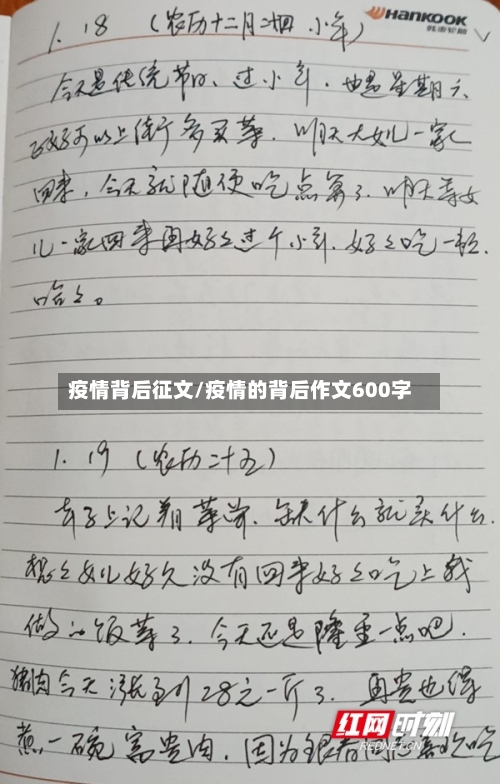 HANKOOK
韩泰轮胎
1.18 (农历十二月二十四 小年)
今天是传统节日、过小年.也是星期六、
正好可以上街多买菜.明天大女儿一家
回来,今天就随便吃点算了.明天等女
儿一家回来再好好过个小年.好好吃一顿.
哈哈。
疫情背后征文/疫情的背后作文600字
1.19 (农历二十五)
去了上记翔菜场.缺什么就买什么.
想想女儿好久没有回来好好吃上我
做的饭菜了.今天还是隆重一点吧.
猪肉今天涨到28元一斤了.再贵也得
煮一碗富贵肉.因为
吃
红网时刻
REDNET.CN